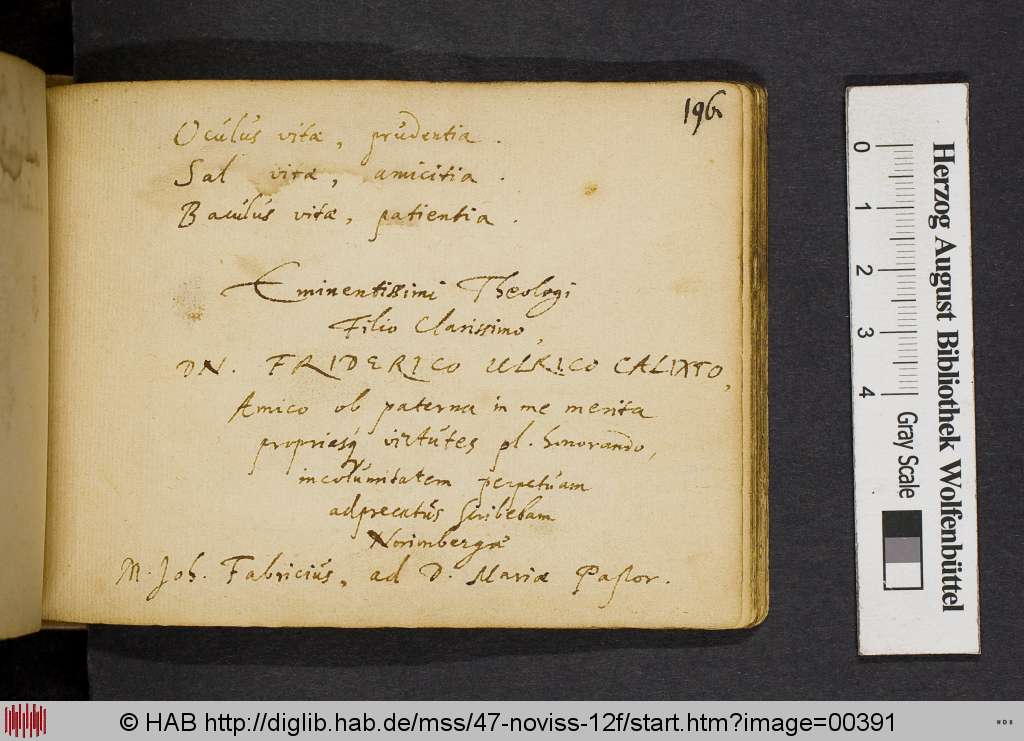 196.
Oculus vitæ, prudentia.
Sal vitæ, amicitia.
Baculus vitæ, patientia.
Eminentissimi Theologi
Filio Clarissimo,
DN. FRIDERICO ULRICO CALIXTO,
Amico ob paterna in me merita
propriasq virtutes pl. honorando,
incolumitatem perpetuam
adprecatus scribebam
Norimbergæ
M. Joh. Fabricius, ad D. Mariæ Pastor.
Herzog August Bibliothek Wolfenbüttel
0 1 2 3 4
Gray Scale
© HAB http://diglib.hab.de/mss/47-noviss-12f/start.htm?image=00391
WDB